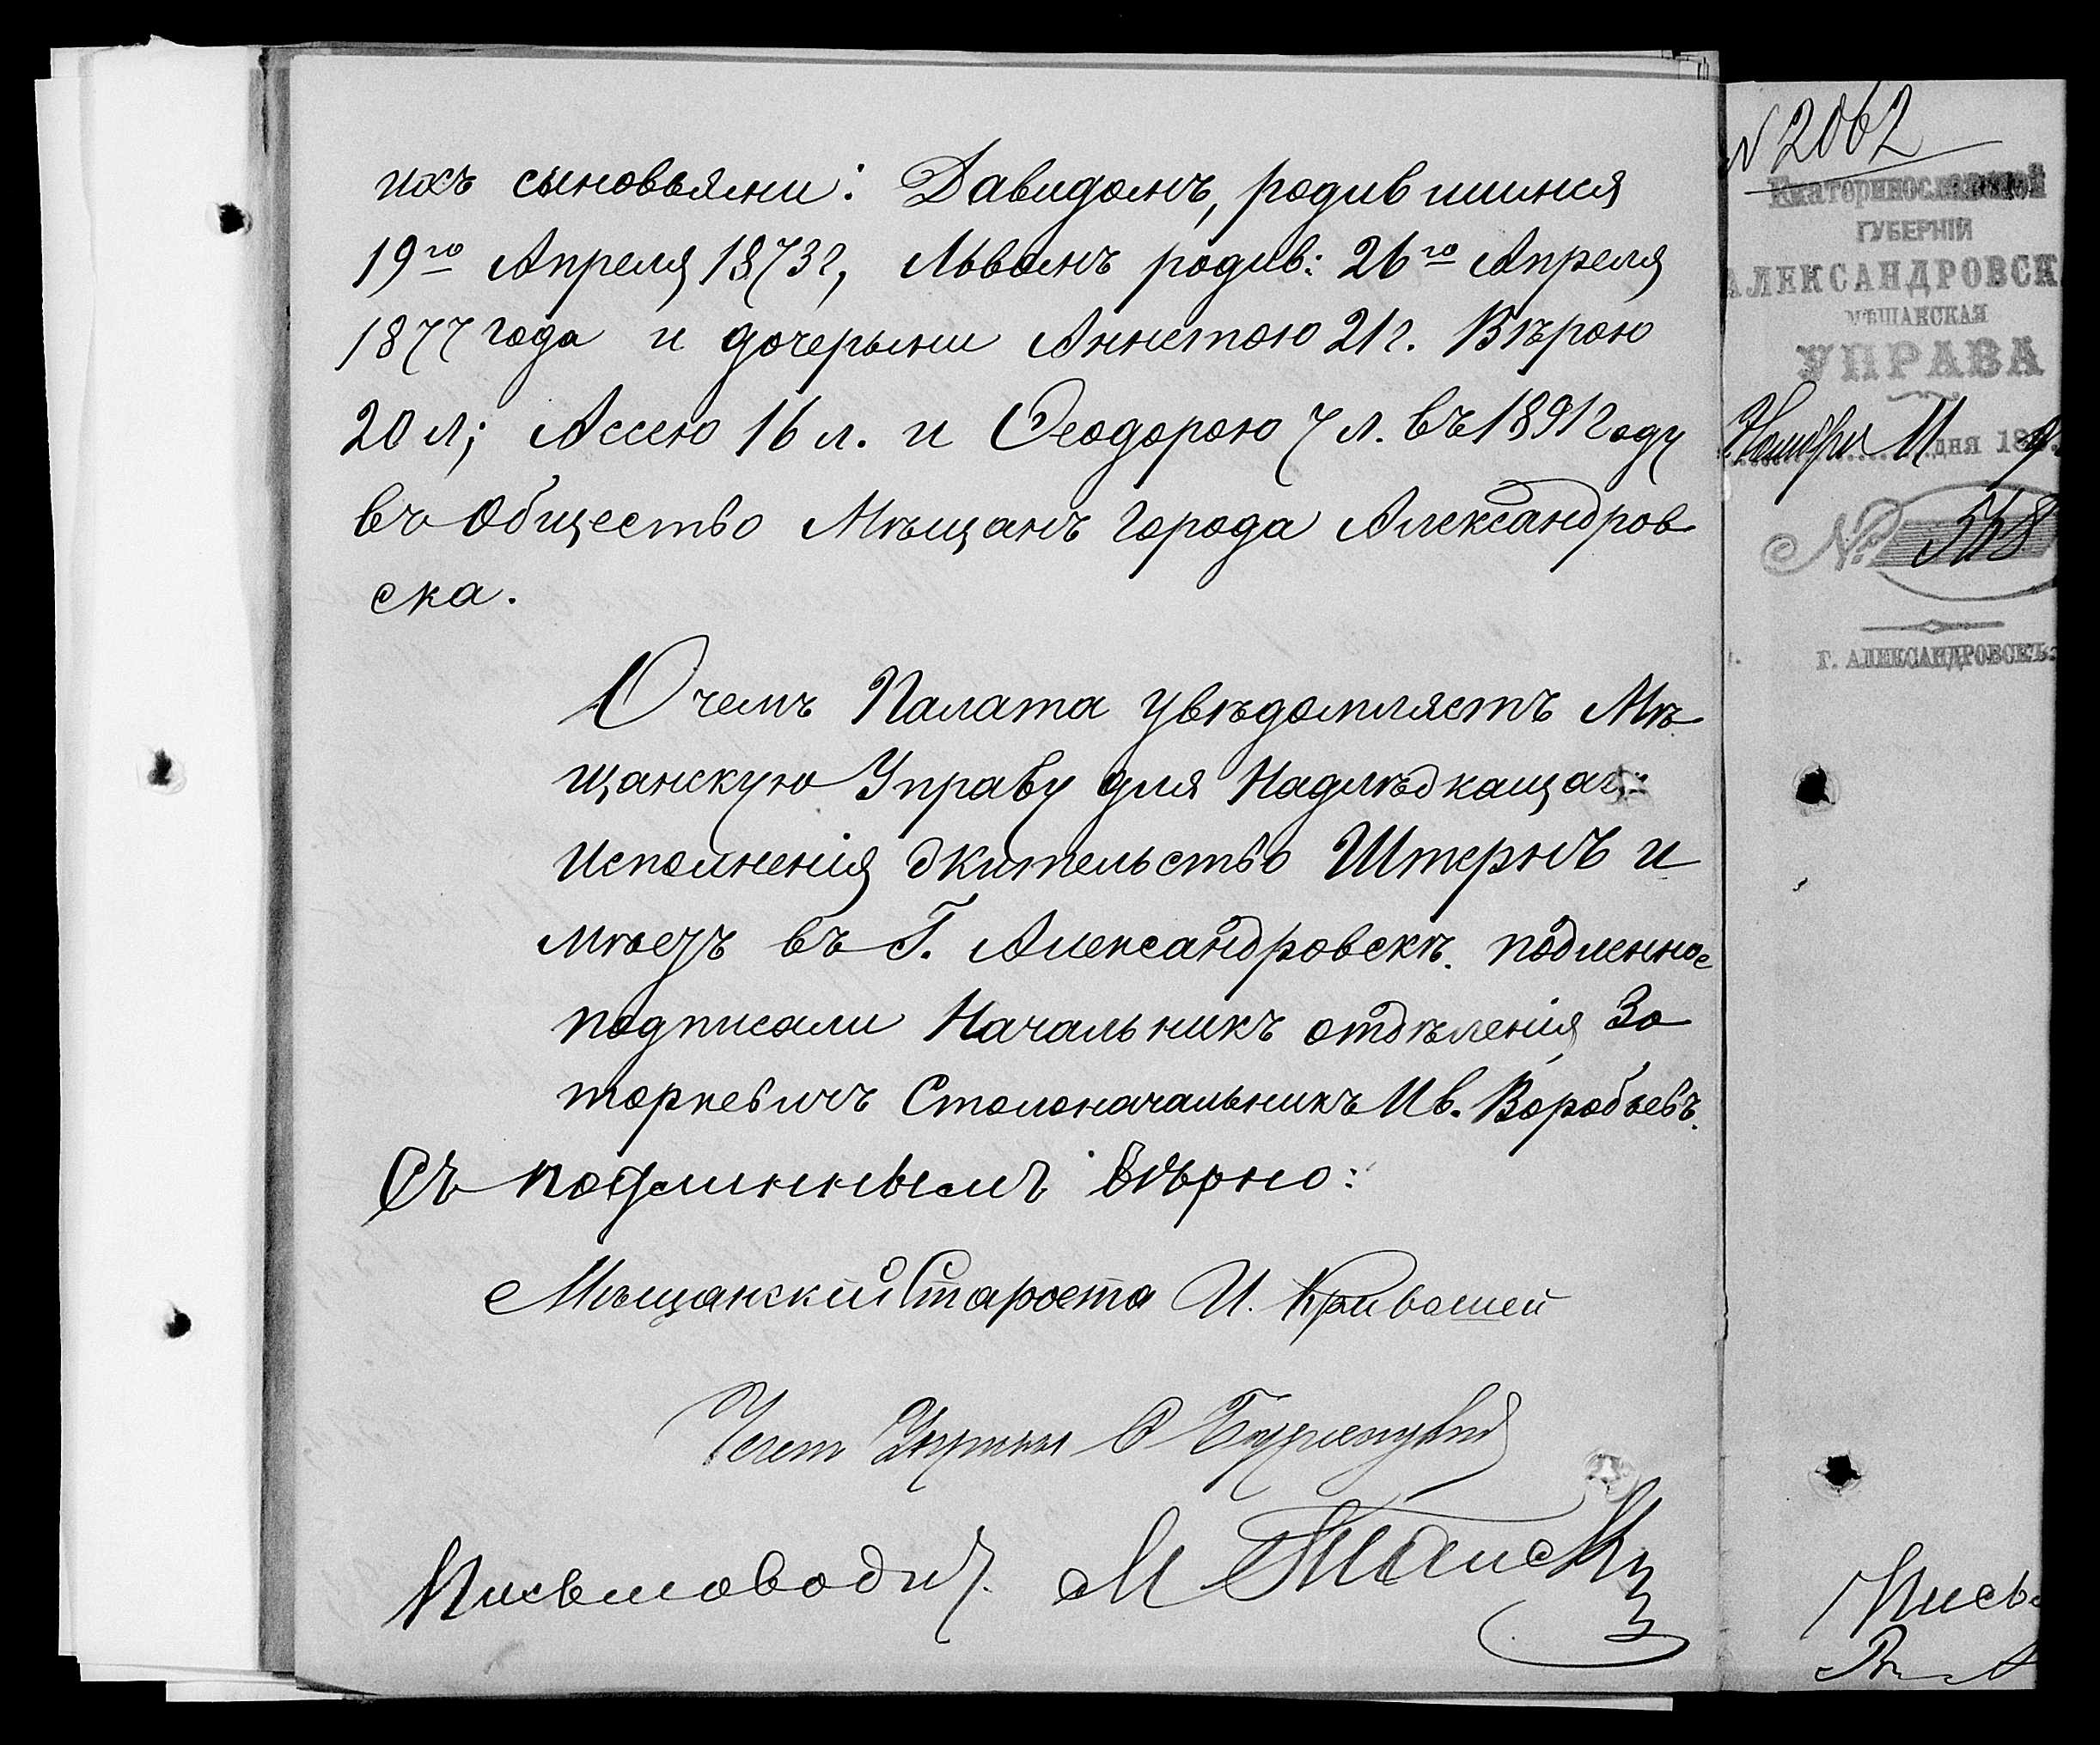 ихъ сыновьями: Давидомъ, родившимся
19го Апреля 1873г, Львомъ родив: 26го Апреля
1877 года и дочерьми Аннетою 21 г. Вѣрою
20 л; Ассею 16 л. и Ѳеодорою 7 л. въ 1891 году
въ Общество Мѣщанъ города Александров
ска.
О чемъ Палата увѣдомляетъ Мѣ
щанскую Управу для Надлѣжащаго
исполненія жительство Штернъ и
мѣетъ въ Г. Александровскѣ. подленное
подписали Начальникъ отдѣленія За
торкевичъ Столоначальникъ Ив. Воробьевъ.
Съ подлиннымъ вѣрно:
Мѣщанскій Староста И. Кривошей
Член Управы
Письмоводит. М
№ 2062
Екатеринославской
ГУБЕРНІИ
АЛЕКСАНДРОВСК
МѢЩАНСКАЯ
УПРАВА
Ноября 11 дня 189
№ 548
Г. АЛЕКСАНДРОВСКЪ.
Письм